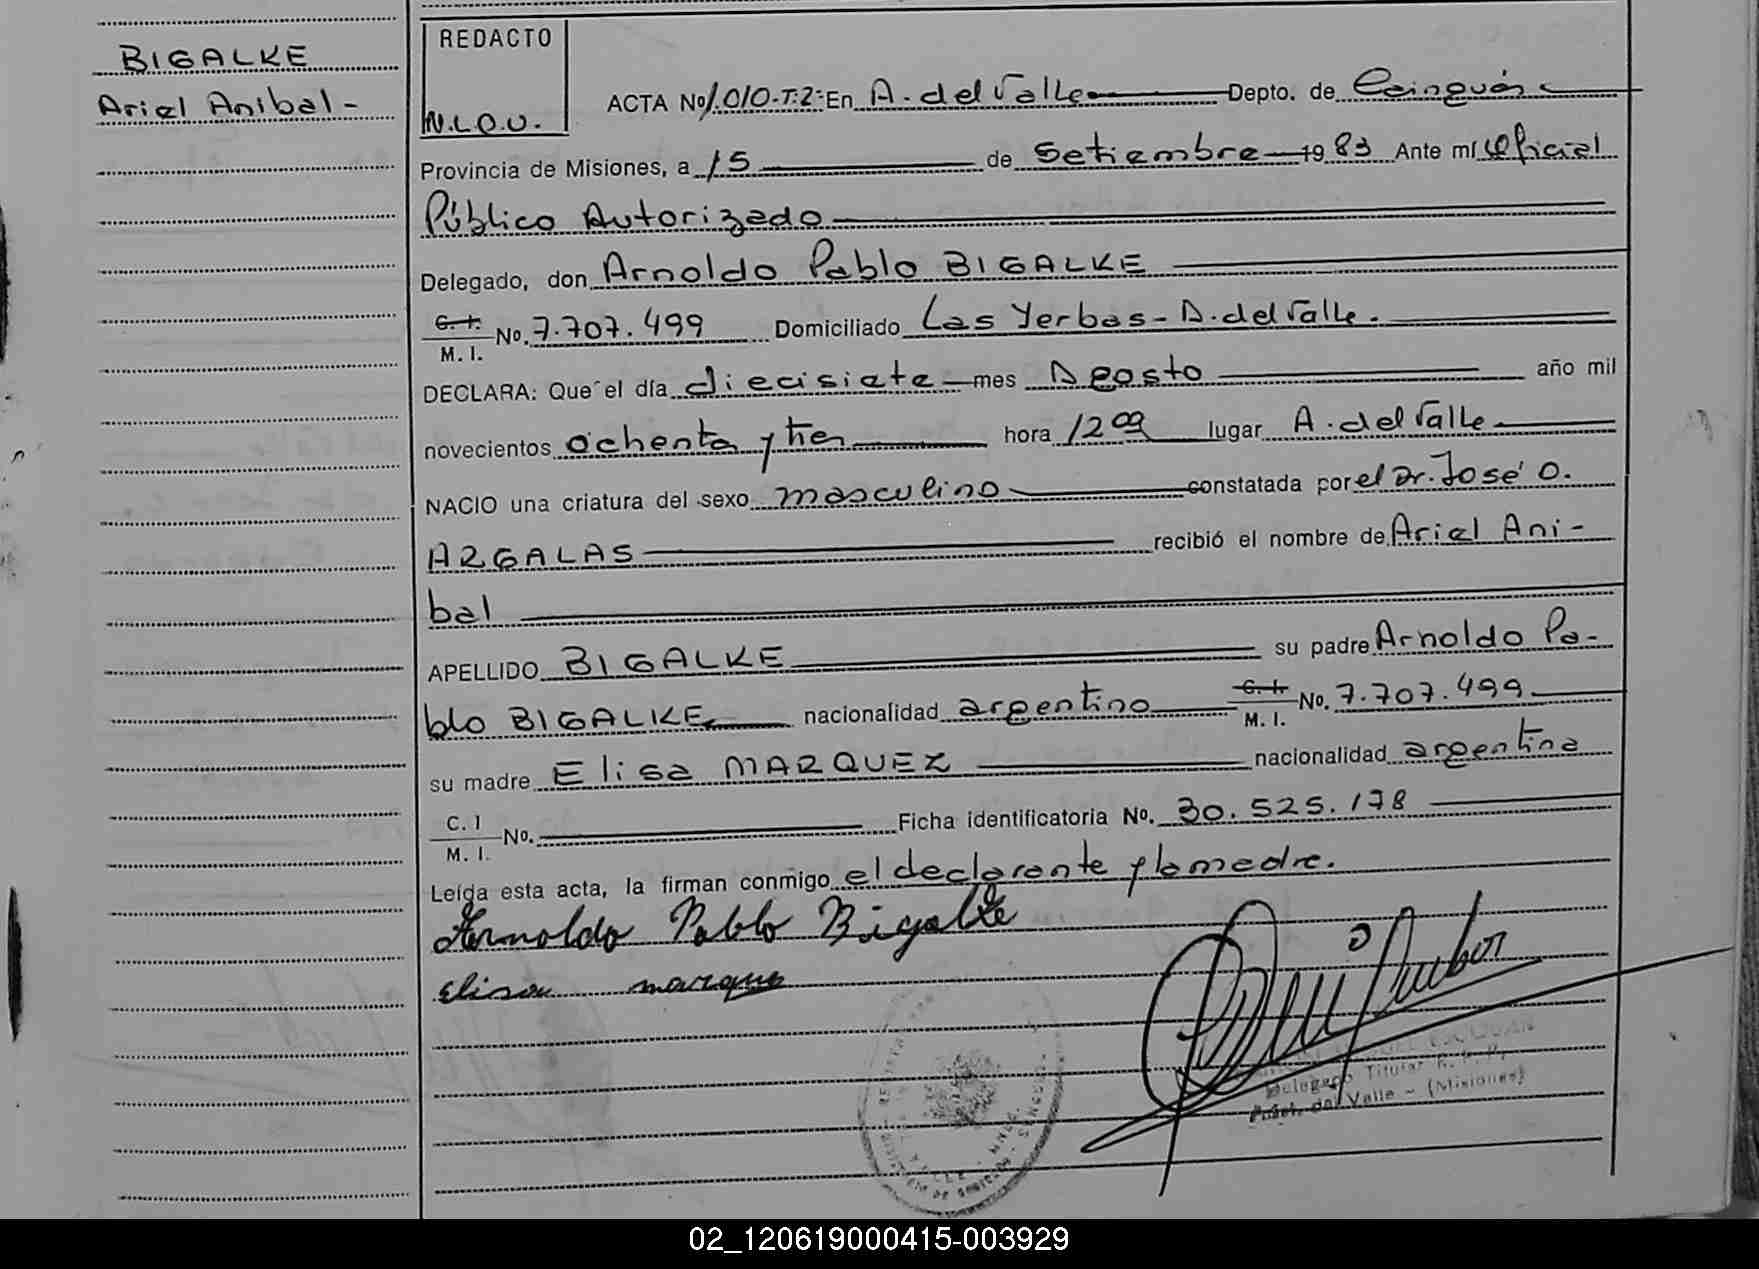 BIGALKE
Ariel Anibal-
REDACTO
N.L.O.U.
ACTA No 1.010-T.2: En A. del Valle Depto. de Cainguás
Provincia de Misiones, a 15 de Setiembre 19 83 Ante mí Oficial
Público Autorizado
Delegado, don Arnoldo Pablo BIGALKE
C. I.
M. I. No. 7.707.499 Domiciliado Las Yerbas - A. del Valle.
DECLARA: Que el día diecisiete mes Agosto año mil
novecientos ochenta y tres hora 12 00 lugar A. del Valle
NACIO una criatura del sexo masculino constatada por el Dr. José O.
ARGALAS recibió el nombre de Ariel Ani-
bal
APELLIDO BIGALKE su padre Arnoldo Pa-
blo BIGALKE nacionalidad argentino C. I. M. I. No. 7.707.499
su madre Elisa MARQUEZ nacionalidad argentina
C. I
M. I. No. Ficha identificatoria No. 30.525.178
Leída esta acta, la firman conmigo el declarante y la madre.
Arnoldo Pablo Bigalke
Elisa marque
Delegado Titular R. P.
A. del Valle - (Misiones)
02_120619000415-003929